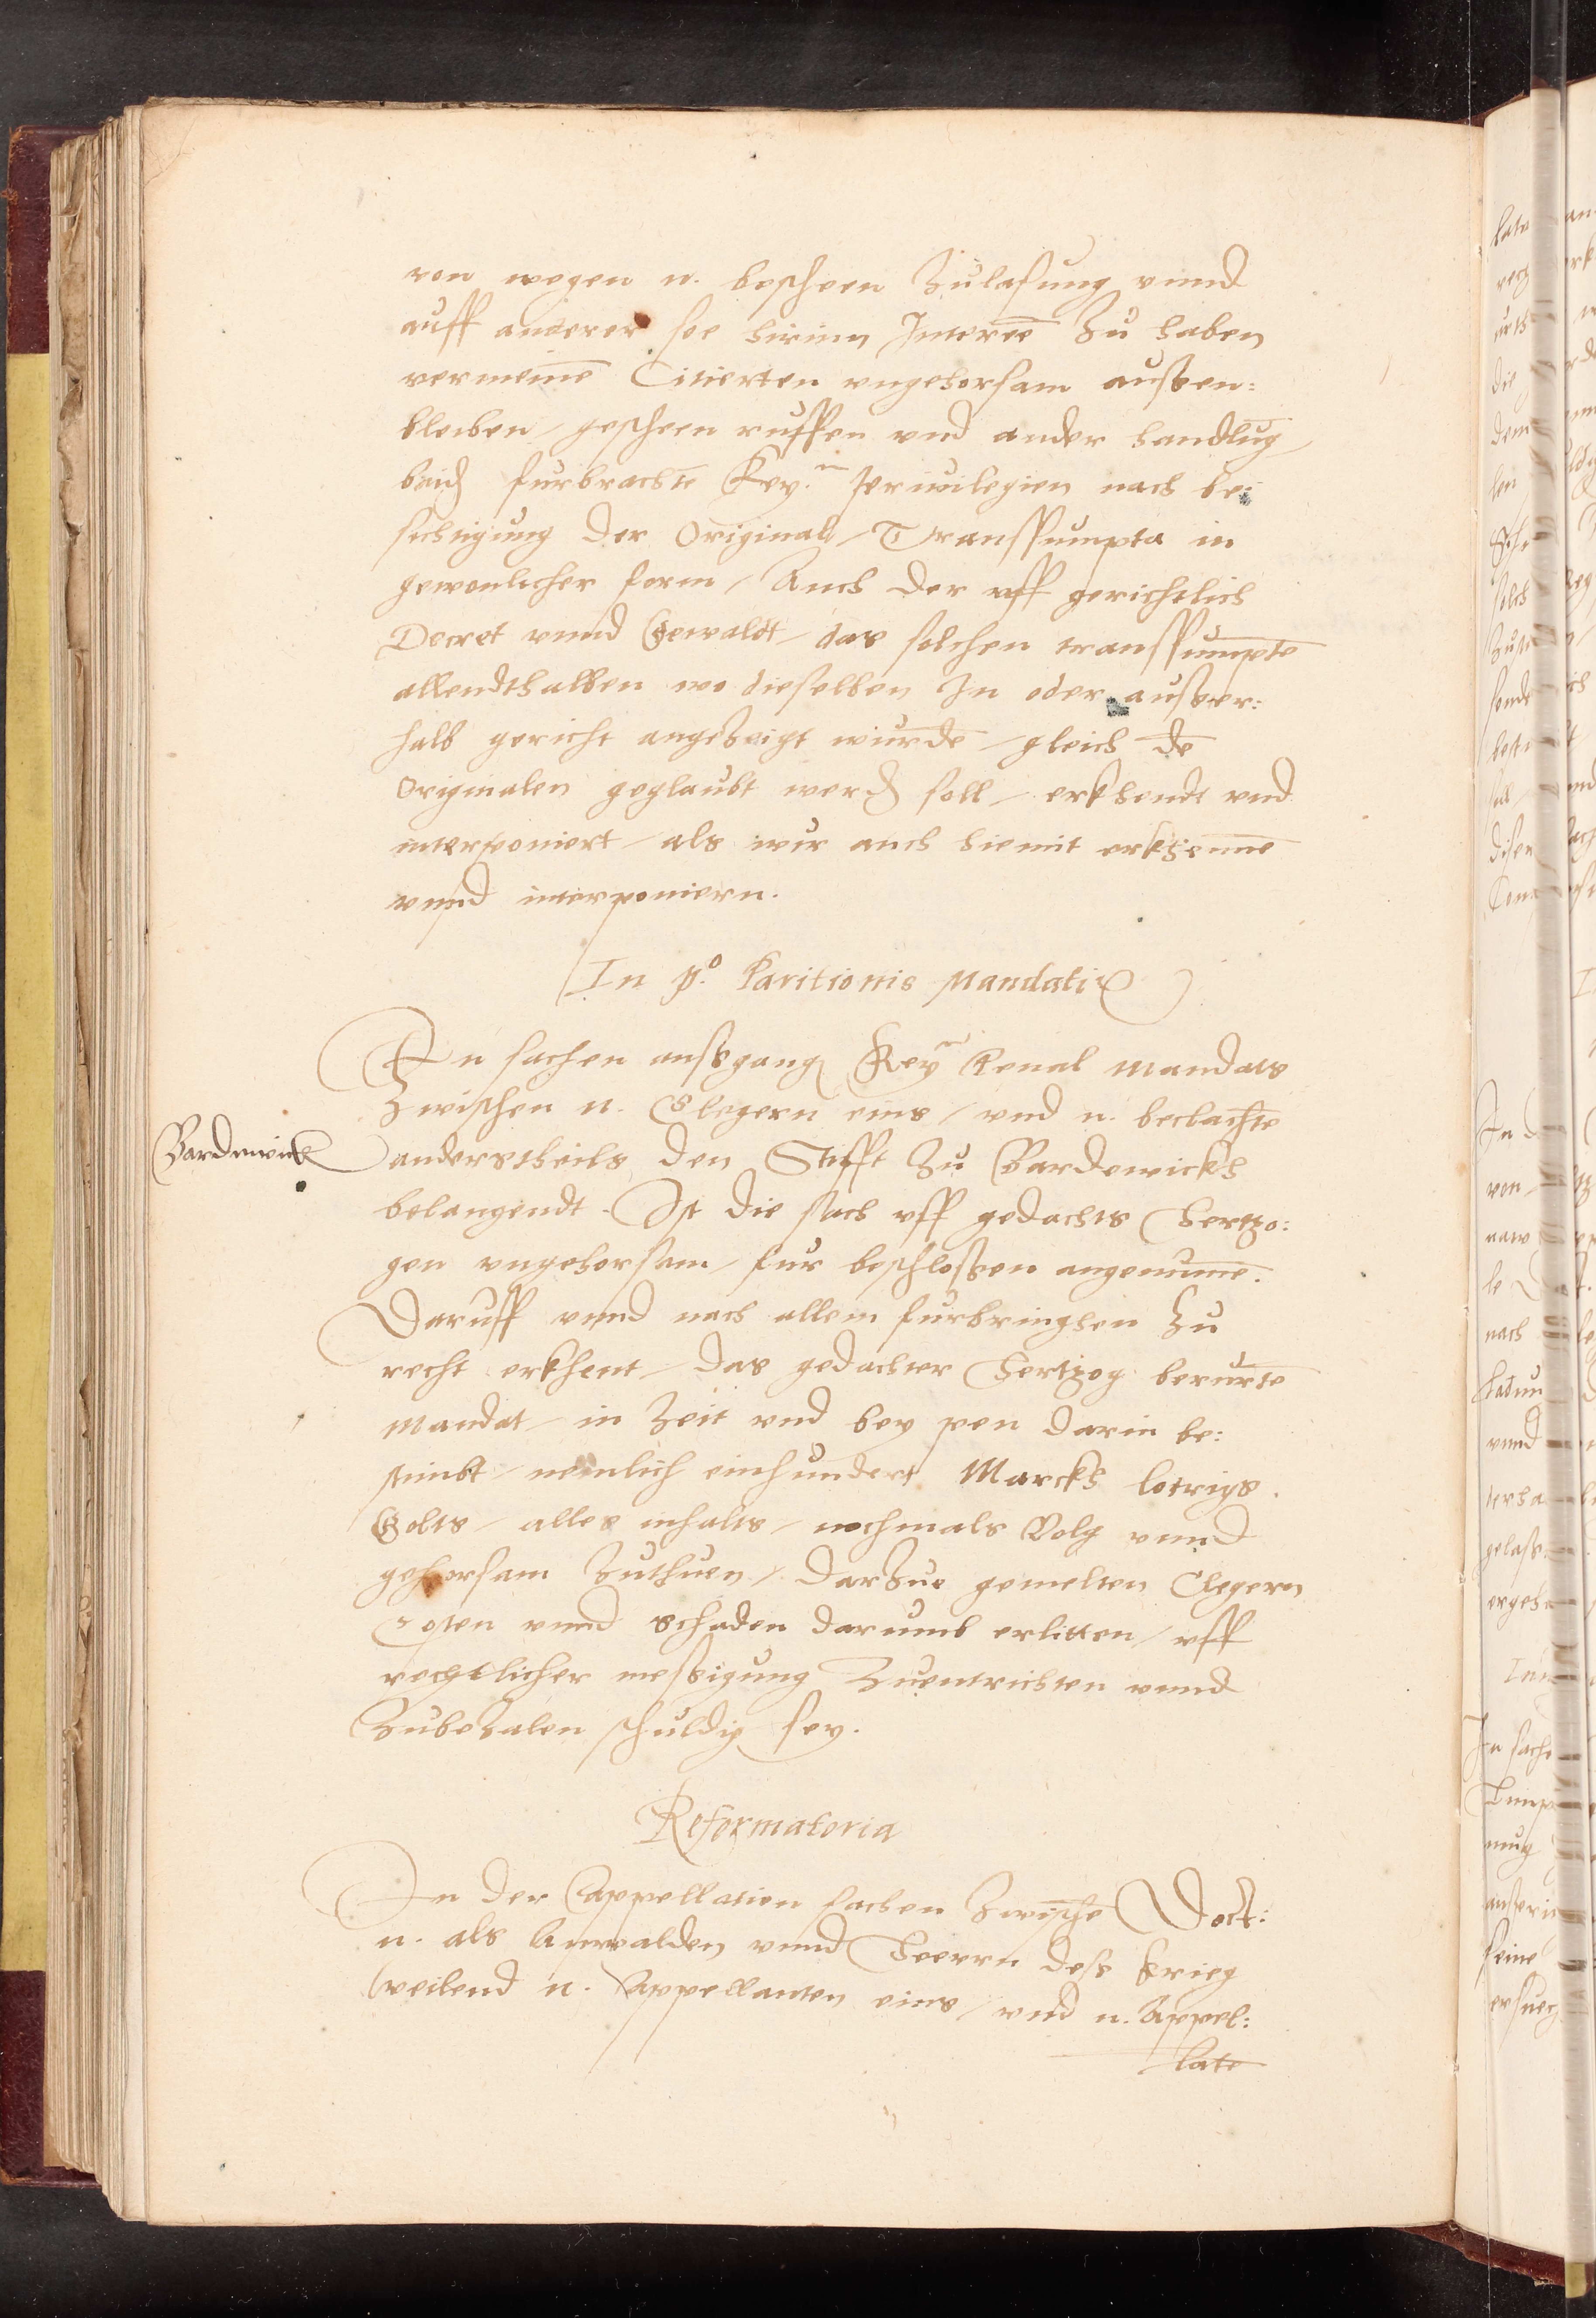 von wegen n. bescheen Zulaßung vnnd
auff anderer soe hirinn Interee Zu haben
vermeine Citierten vngehorsam außen:
bleiben / gescheen ruffen vnd ander handlūg
beid furbrachte Key.n Privilegien nach be:
sichtigung der Original / Transsumpta in
gewonlicher form / Auch der vff gerichtlich
Decret vnnd Gewaldt / das solchen transsumpte
allendthalben wo dieselben In oder außer:
halb gericht angeZeigt wurde / gleich de
Originalen geglaubt werd soll / erkhendt vnd
interponiert / als wir auch hiemit erkhenne
vnnd interponiern.
In p.o Paritionis Mandati
In sachen außgang Keyn Penal Mandats
Zwischen n. Clegern eins / vnd n. beclachte
Bardewick
anderstheils den Stifft Zu Bardewickh
belangendt. Ist die sach vff gedachts Hertzo:
gen vngehorsam / fur beschloßen angenumme.
Daruff vnnd nach allem furbringhen Zu
recht erkhent / das gedachter Hertzog berurte
Mandat / in Zeit vnd bey pen darin be:
stimbt / nemlich einhundert Marckh lotrigs
Golts / alles inhalts / nochmals Volg vnnd
gehorsam Zuthuen / darZue gemelten Clegern
Costen vnnd schaden darumb erlitten / vff
rechtlicher meßigung Zuentrichten vnnd
ZubeZalen schuldig sey.
Reformatoria
In der Appellation sachen Zwische Doct:
n. als Anwalden vnnd Heerrn deß krieg
weilend n. Appellanten eins / vnd n. Appel:
late